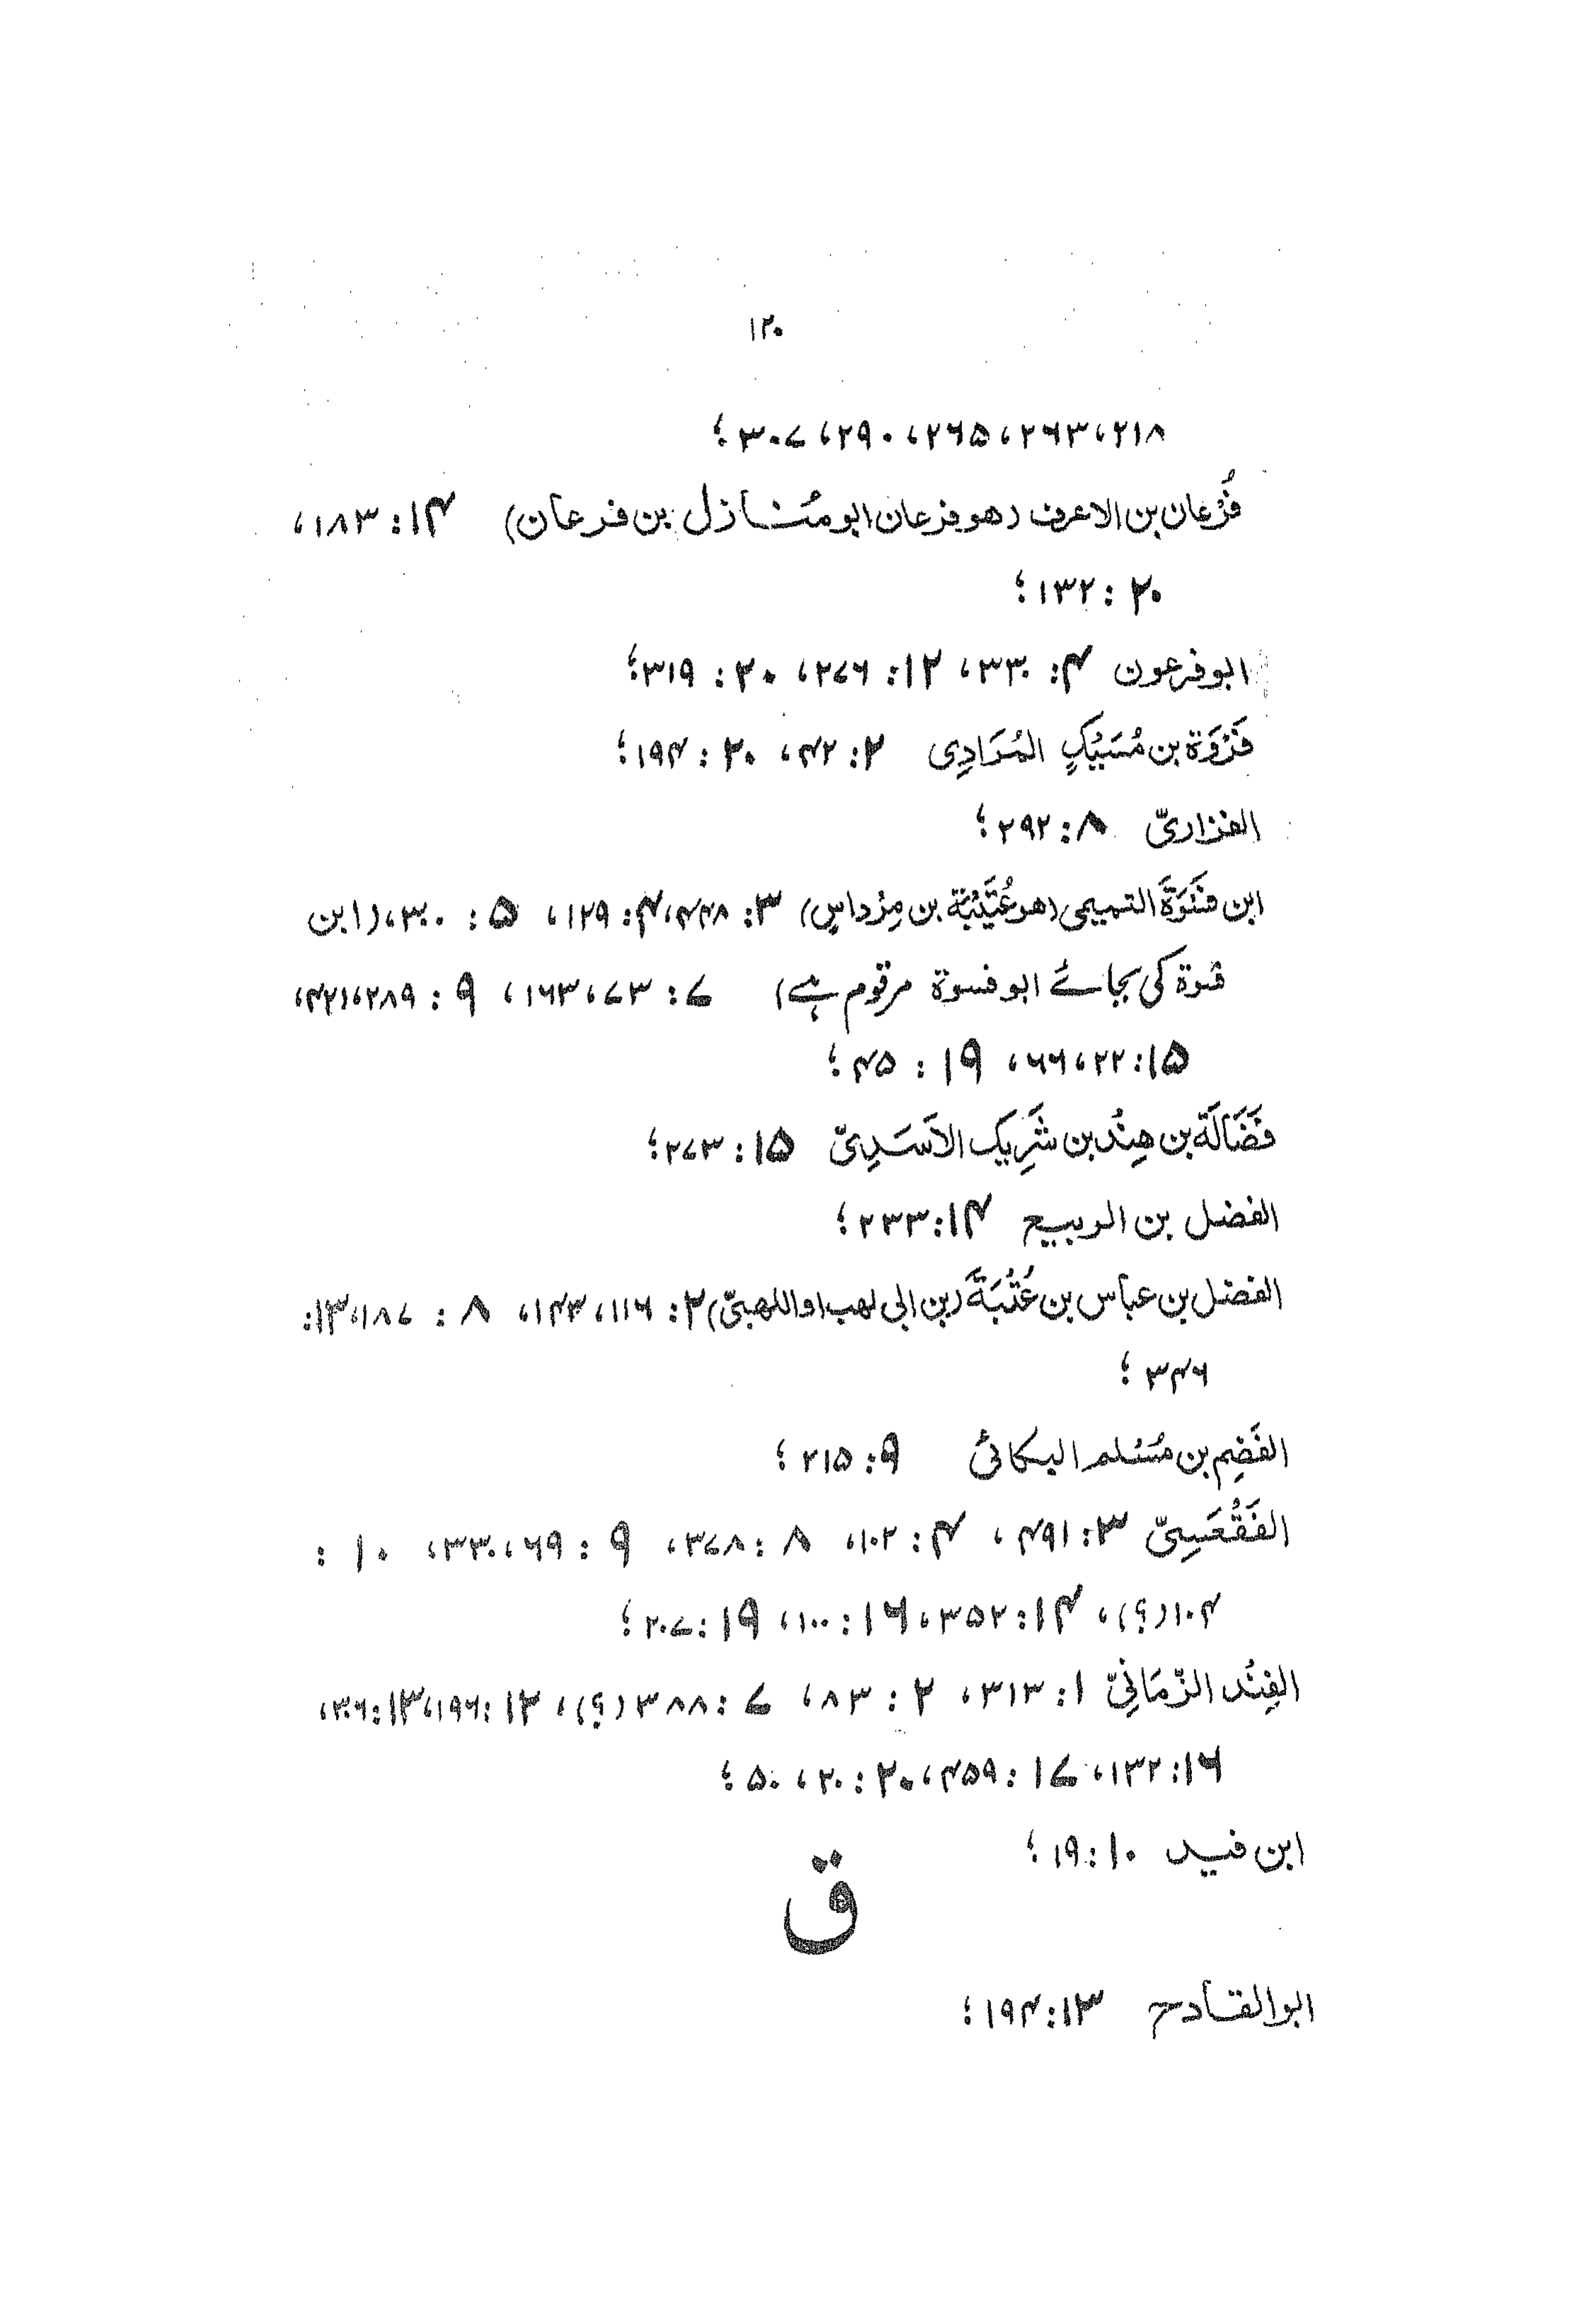 ۱۲۰
۲۱۸، ۲۶۳، ۲۶۵، ۲۹۰، ۳۰۷؛
فُرْعان بن الاعرف (هو فرعان ابو مُنازل بن فرعان) ۱۴: ۱۸۳،
۲۰: ۱۳۲؛
ابو فرعون ۴: ۳۳۰، ۱۲: ۲۷۶، ۲۰: ۳۱۹؛
فَرْوَة بن مُسَيْكٍ المُرَادِى ۲: ۴۲، ۲۰: ۱۹۴؛
الفزارىّ ۸: ۲۹۲؛
ابن فَسْوَةَ التميمى (هو عُتَيْبَة بن مِرْداسٍ) ۳: ۴۴۸، ۴: ۱۲۹، ۵: ۳۰۰، (ابن
فسوة کی بجائے ابو فسوة مرقوم ہے) ۷: ۷۳، ۱۶۳، ۹: ۲۸۹، ۴۲۱،
۱۵: ۲۲، ۶۶، ۱۹: ۴۵؛
فَضَالَة بن هِنْد بن شَرِيك الاَسَدِىّ ۱۵: ۲۷۳؛
الفضل بن الربيع ۱۴: ۲۳۳؛
الفضل بن عباس بن عُتْبَةَ (بن ابى لهب او اللهبىّ) ۲: ۱۱۶، ۱۴۳، ۸: ۱۸۷، ۱۳:
۳۴۶؛
الفَضِم بن مُسْلم البكائى ۹: ۲۱۵؛
الفَقْعَسِىّ ۳: ۴۹۱، ۴: ۱۰۲، ۸: ۳۷۸، ۹: ۶۹، ۳۳۰، ۱۰:
۱۰۴(؟)، ۱۴: ۳۵۲، ۱۶: ۱۰۰، ۱۹: ۲۰۷؛
الفِنْد الزّمَانِىّ ۱: ۳۱۳، ۲: ۸۳، ۷: ۳۸۸(؟)، ۱۲: ۱۹۶، ۱۳: ۳۰۶،
۱۶: ۱۳۲، ۱۷: ۴۵۹، ۲۰: ۲۰، ۵۰؛
ابن فيد ۱۰: ۱۹؛
ق
ابو القادح ۱۳: ۱۹۴؛